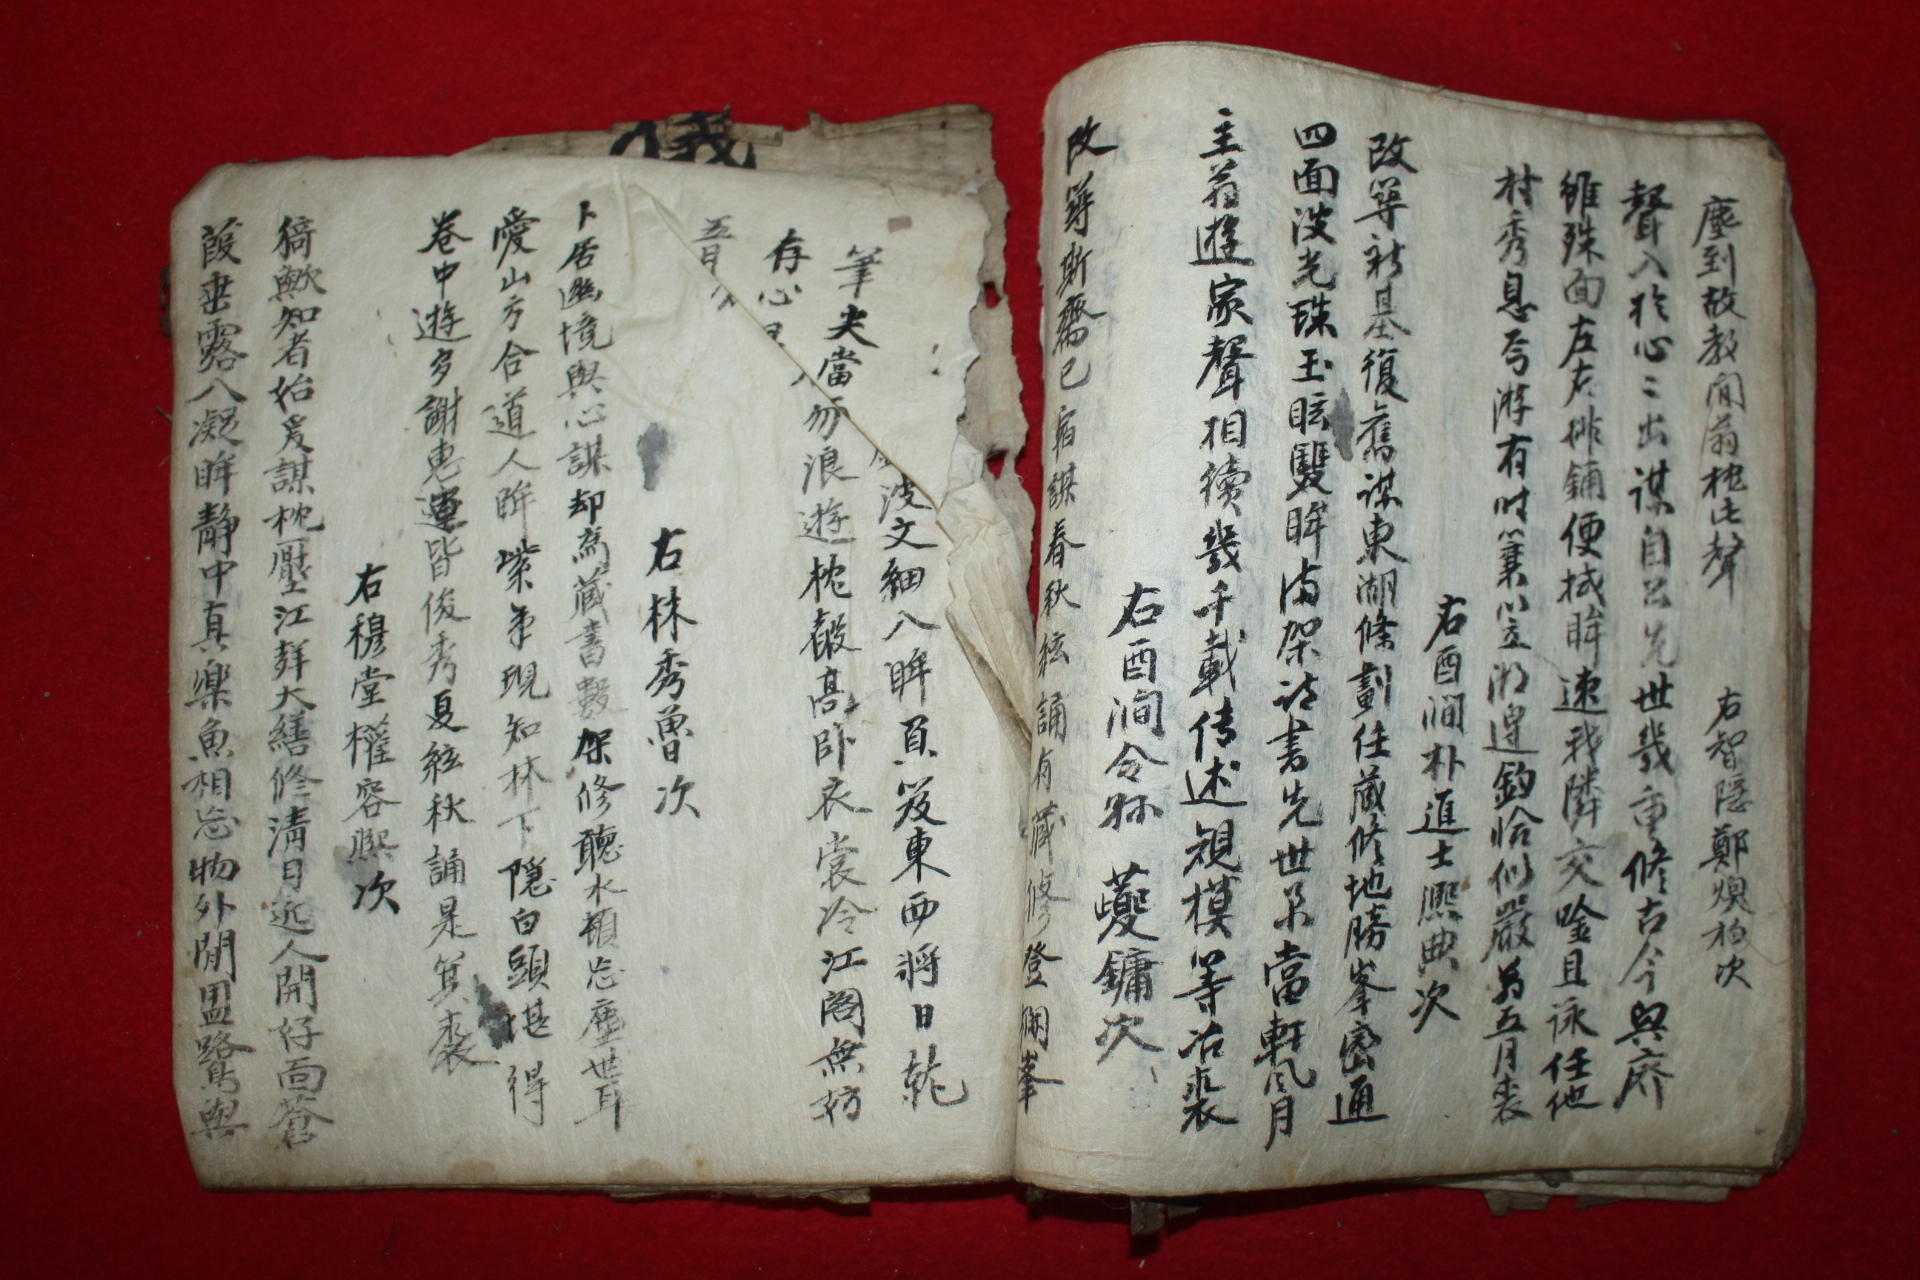 塵到故教閒翁枕此聲
右智隱鄭煥杓次
聲入於心心出謀自公先世幾重修古今與廢
雖殊面左右排鋪便拭眸速我隣交唫且詠任他
村秀息兮游有時筆立湖邊釣恰似嚴翁五月裘
右酉澗朴進士熙典次
改築新基復舊謀東湖條劃任藏修地勝峯巒通
四面波光珠玉眩雙眸滿架詩書先世業當軒風月
主翁遊家聲相續幾千載傳述規模等冶裘
右酉澗令孫夔鏞次
改築斯齋已宿謀春秋絃誦有藏修登欄峯
波文細入眸負笈東西將日就
筆尖當勿浪遊枕簟高卧衣裳冷江閣無妨
存心
五月
右林秀魯次
卜居幽境與心謀却爲藏書數架修聽水頓忘塵世耳
愛山方合道人眸紫芽現知林下隱白頭堪得
卷中遊多謝惠連皆俊秀夏絃秋誦是箕裘
右穆堂權容熙次
猗歟知者始爰謀枕壓江群大繕修淸日近人開好面蒼
葭垂露入凝眸靜中真樂魚相忘物外閒盟鷺與